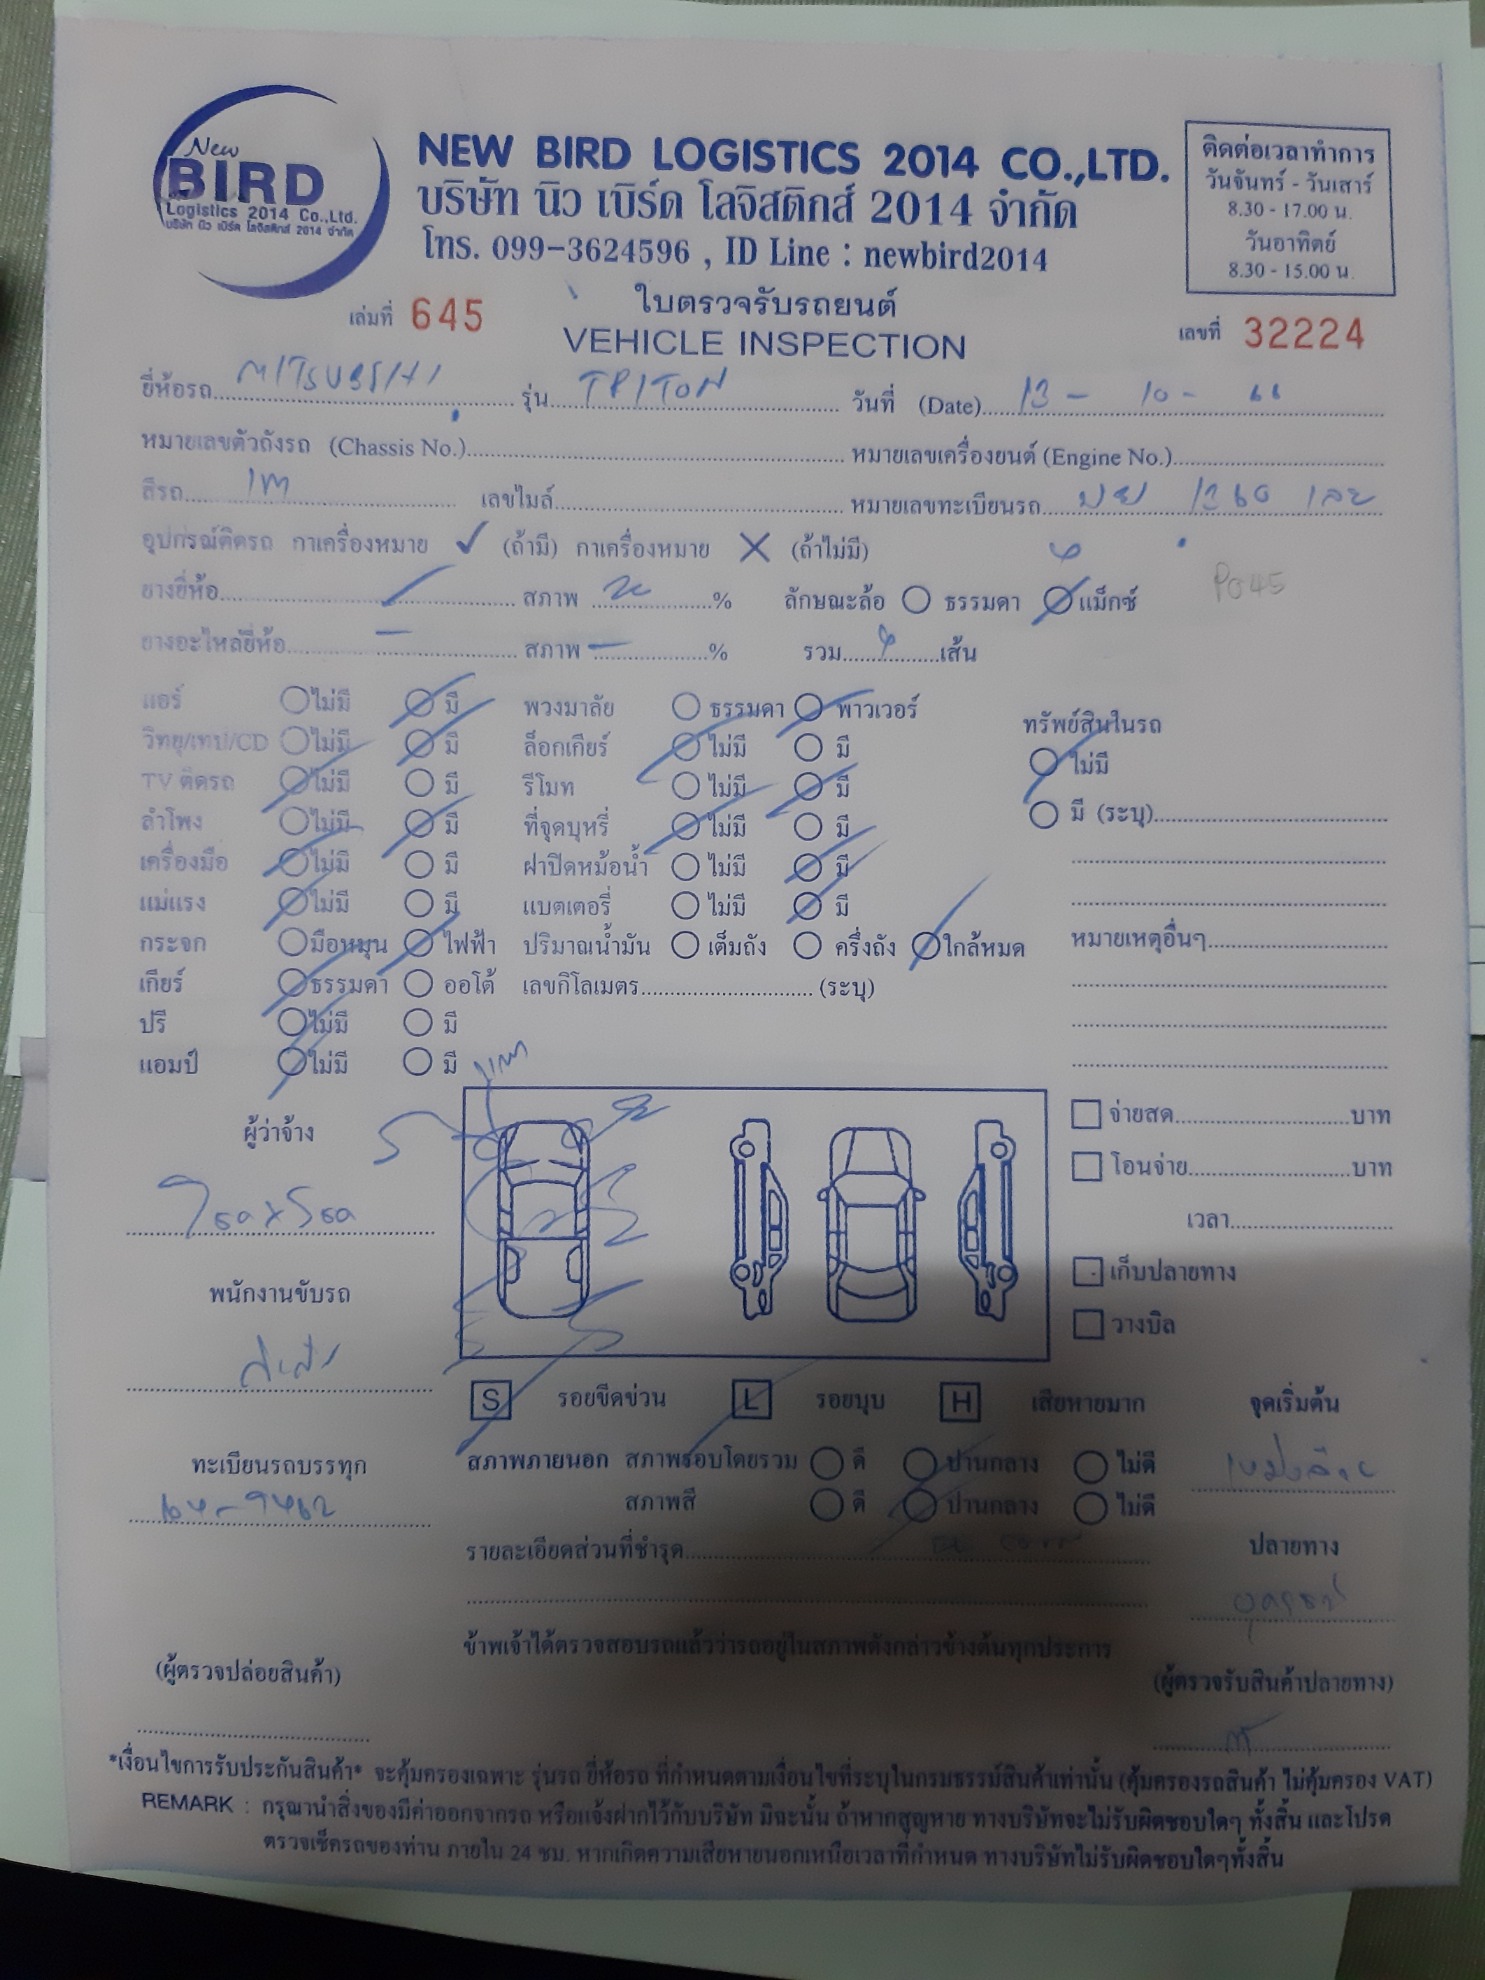 New
BIRD
Logistics 2014 Co.,Ltd.
บริษัท นิว เบิร์ด โลจิสติกส์ 2014 จำกัด
NEW BIRD LOGISTICS 2014 CO.,LTD.
บริษัท นิว เบิร์ด โลจิสติกส์ 2014 จำกัด
โทร. 099-3624596 , ID Line : newbird2014
ติดต่อเวลาทำการ
วันจันทร์ - วันเสาร์
8.30 - 17.00 น.
วันอาทิตย์
8.30 - 15.00 น.
เล่มที่ 645
ใบตรวจรับรถยนต์
VEHICLE INSPECTION
เลขที่ 32224
ยี่ห้อรถ MITSUBISHI รุ่น TRITON วันที่ (Date) 13 - 10 - 66
หมายเลขตัวถังรถ (Chassis No.) หมายเลขเครื่องยนต์ (Engine No.)
สีรถ เทา เลขไมล์ หมายเลขทะเบียนรถ 1260 เลย
อุปกรณ์ติดรถ กาเครื่องหมาย ✓ (ถ้ามี) กาเครื่องหมาย ✕ (ถ้าไม่มี)
ยางยี่ห้อ สภาพ % ลักษณะล้อ ธรรมดา แม็กซ์
P045
ยางอะไหล่ยี่ห้อ – สภาพ – % รวม 4 เส้น
แอร์ ไม่มี มี พวงมาลัย ธรรมดา พาวเวอร์
วิทยุ/เทป/CD ไม่มี มี ล็อกเกียร์ ไม่มี มี
TV ติดรถ ไม่มี มี รีโมท ไม่มี มี
ลำโพง ไม่มี มี ที่จุดบุหรี่ ไม่มี มี
เครื่องมือ ไม่มี มี ฝาปิดหม้อน้ำ ไม่มี มี
แม่แรง ไม่มี มี แบตเตอรี่ ไม่มี มี
กระจก มือหมุน ไฟฟ้า ปริมาณน้ำมัน เต็มถัง ครึ่งถัง ใกล้หมด
เกียร์ ธรรมดา ออโต้ เลขกิโลเมตร (ระบุ)
ปรี ไม่มี มี
แอมป์ ไม่มี มี
ทรัพย์สินในรถ
ไม่มี
มี (ระบุ)
หมายเหตุอื่นๆ
ผู้ว่าจ้าง
พนักงานขับรถ
ทะเบียนรถบรรทุก
จ่ายสด บาท
โอนจ่าย บาท
เวลา
เก็บปลายทาง
วางบิล
S รอยขีดข่วน L รอยบุบ H เสียหายมาก
สภาพภายนอก สภาพรอบโดยรวม ดี ปานกลาง ไม่ดี
สภาพสี ดี ปานกลาง ไม่ดี
รายละเอียดส่วนที่ชำรุด
จุดเริ่มต้น
ปลายทาง
ข้าพเจ้าได้ตรวจสอบรถแล้วว่ารถอยู่ในสภาพดังกล่าวข้างต้นทุกประการ
(ผู้ตรวจปล่อยสินค้า)
(ผู้ตรวจรับสินค้าปลายทาง)
*เงื่อนไขการรับประกันสินค้า* จะคุ้มครองเฉพาะ รุ่นรถ ยี่ห้อรถ ที่กำหนดตามเงื่อนไขที่ระบุในกรมธรรม์สินค้าเท่านั้น (คุ้มครองรถสินค้า ไม่คุ้มครอง VAT)
REMARK : กรุณานำสิ่งของมีค่าออกจากรถ หรือแจ้งฝากไว้กับบริษัท มิฉะนั้น ถ้าหากสูญหาย ทางบริษัทจะไม่รับผิดชอบใดๆ ทั้งสิ้น และโปรด
ตรวจเช็ครถของท่าน ภายใน 24 ชม. หากเกิดความเสียหายนอกเหนือเวลาที่กำหนด ทางบริษัทไม่รับผิดชอบใดๆทั้งสิ้น